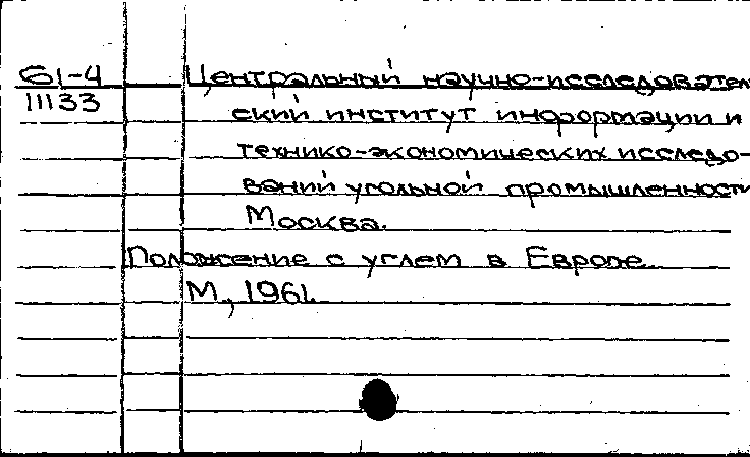 61-4 Центральный научно-исследовател
11133 ский институт информации и
технико-экономических исследо-
ваний угольной промышленности
Москва.
Положение с углем в Европе.
М., 1961.